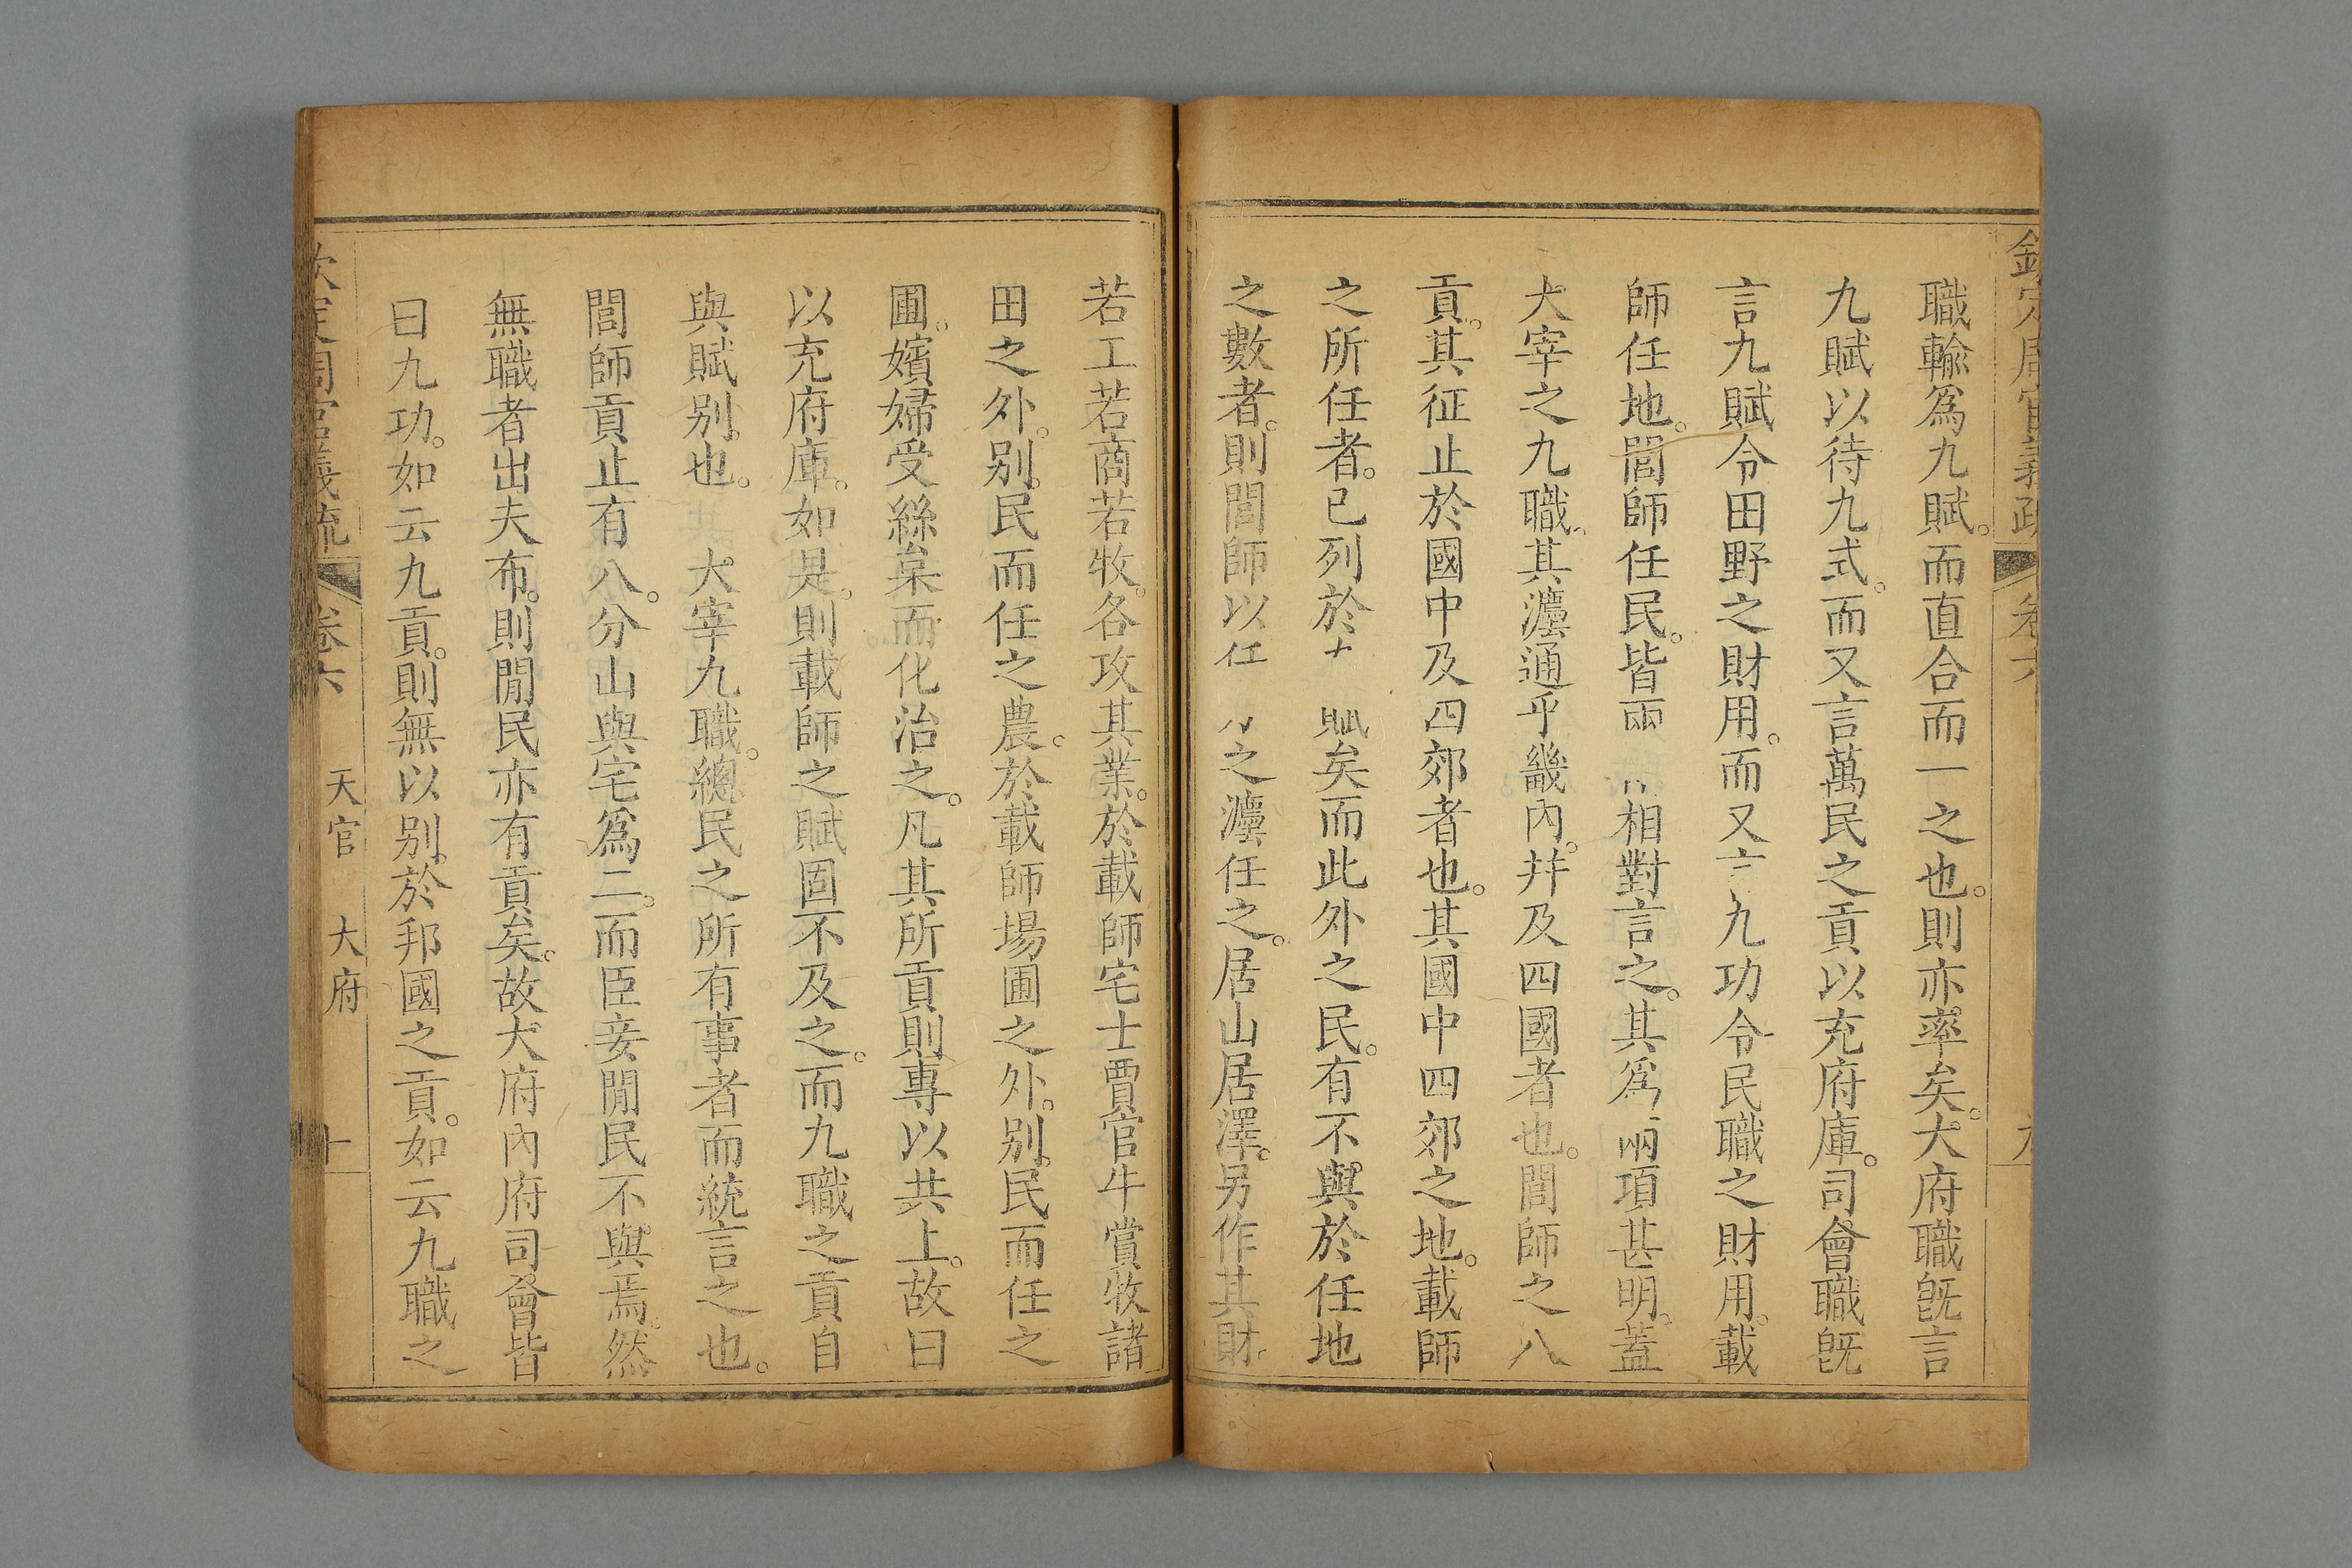 職輸爲九賦。而直合而一之也。則亦率矣。大府職旣言
九賦以待九式。而又言萬民之貢以充府庫。司會職旣
言九賦令田野之財用。而又言九功令民職之財用。載
師任地。閭師任民。皆兩兩相對言之。其爲兩項甚明。蓋
大宰之九職。其灋通乎畿內。幷及四國者也。閭師之八
貢。其征止於國中及四郊者也。其國中四郊之地。載師
之所任者。已列於 賦矣而此外之民。有不與於任地
之數者。則閭師以任 之灋任之。居山居澤。另作其財。
若工若商若牧。各攻其業。於載師宅士賈官牛賞牧諸
田之外。别民而任之農。於載師場圃之外。别民而任之
圃。嬪婦受絲枲而化治之。凡其所貢則專以共上。故曰
以充府庫。如是。則載師之賦固不及之。而九職之貢自
與賦别也。 大宰九職。總民之所有事者而統言之也。
閭師貢止有八。分山與宅爲二。而臣妾閒民不與焉。然
無職者出夫布。則閒民亦有貢矣。故大府內府司會皆
曰九功。如云九貢。則無以别於邦國之貢。如云九職之
欽定周官義疏 卷六 天官 大府 十